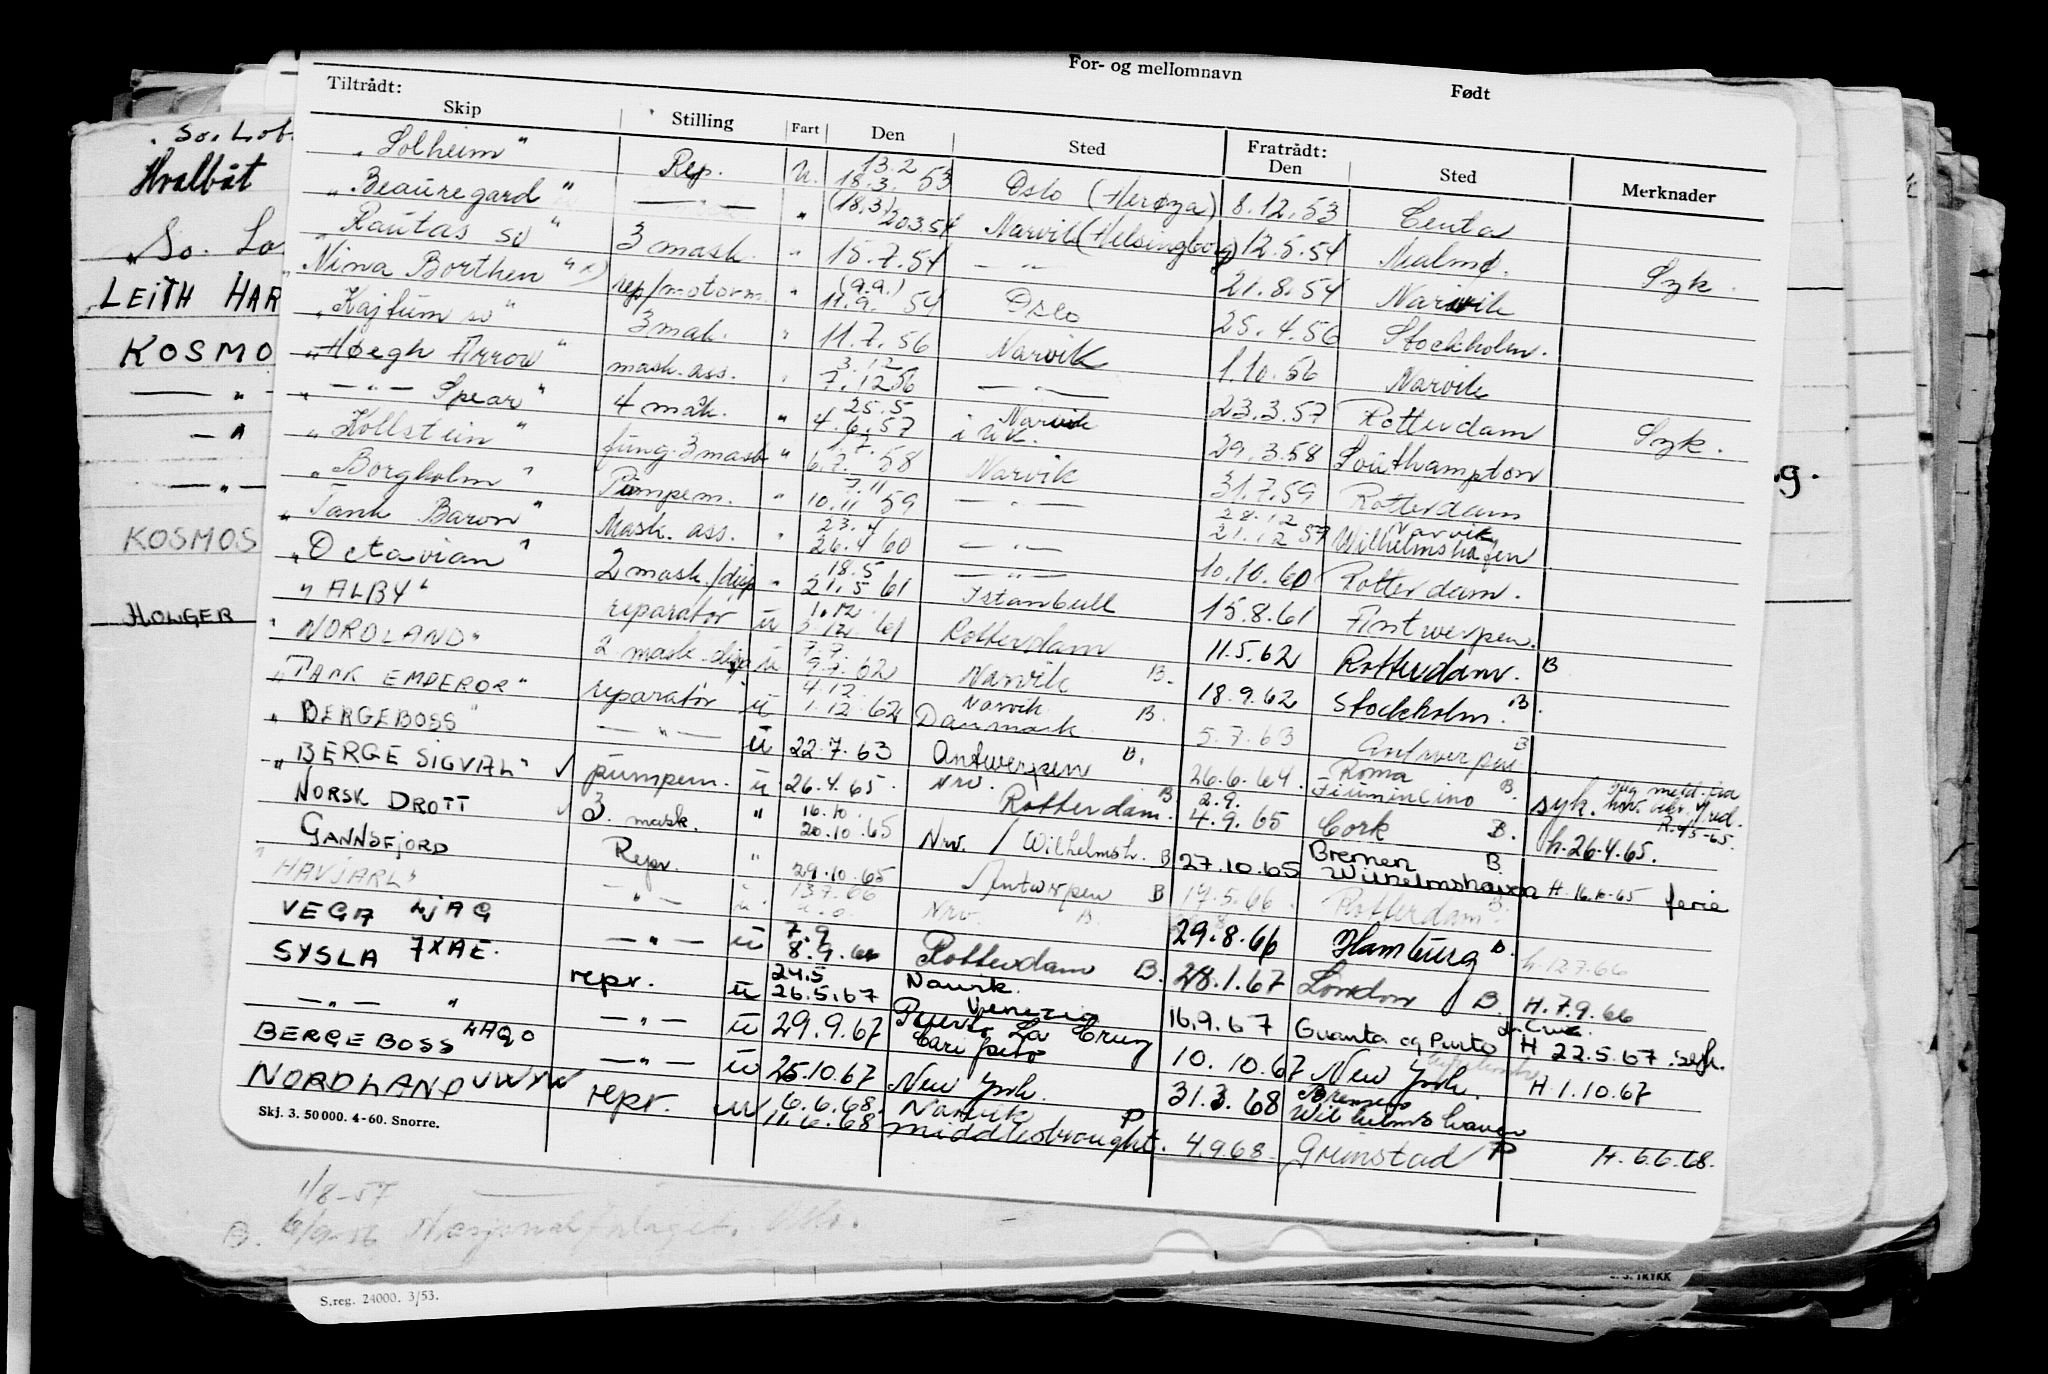 For- og mellomnavn Født
Tiltrådt: Fratrådt:
Skip Stilling Fart Den Sted Den Sted Merknader
"Solheim" Rep. U. 13.2 18.3. 53 Oslo (Herøya) 8.12.53 Ceuta
"Beauregard" —"— " (18.3) 20.3.54 Narvik (Helsingborg) 12.5.54 Malmø. Syk.
"Rautas sv" 3 mask. " 15.7.54 —"— 21.8.54 Narvik
"Nina Borthen" x) rep/motorm. " (9.9.) 11.9. 54 Oslo 25.4.56 Stockholm.
"Kajtum sv" 3 mak. " 11.7.56 Narvik 1.10.56 Narvik
"Høegh Arrow" mask. ass. " 3.12 7.12 56 —"— 23.3.57 Rotterdam Syk.
"—"— Spear" 4 mak. " 25.5 4.6.57 Narvik i UK. 29.3.58 Southampton
"Kollstein" fung. 3 mask " 1.7. 6.7. 58 Narvik 31.7.59 Rotterdam
"Borgholm" Pumpem. " 7.11 10.11 59 —"— 28.12 21.12 59 Narvik Wilhelmshafen
"Tank Baron" Mask. ass. " 23.4 26.4 60 —"— 10.10.60 Rotterdam.
"Octavian" 2 mask./disp " 18.5 21.5 61 —"— Istanbull 15.8.61 Antwerpen.
"ALBY" reparatør u 1.12. 3.12. 61 Rotterdam 11.5.62 Rotterdam. B
"NORDLAND" 2 mask. disp. u 7.7. 9.7.62 Narvik B. 18.9.62 Stockholm. B.
"TANK EMPEROR" reparatør u 4.12. 1.12.62 Narvik Danmark B. 5.7.63 Antwerpen B
"BERGEBOSS" —"— u 22.7.63 Antwerpen B. 26.6.64. Roma Fiumincino B.
"BERGE SIGVAL" ✓ pumpem. u 26.4.65. Nrv. Rotterdam. B 2.9. 4.9.65 Cork B. syk. h. 26.4.65.
NORSK DROTT ✓ 3. mask. " 16.10. 20.10.65 Nrv. / Wilhelmsh. B 27.10.65 Bremen Wilhelmshaven B. H. 16.10-65 ferie
GANNSFJORD Repr. " 29.10.65 Antwerpen B 14.5.66. Rotterdam B.
"HAVJARL" —"— u. 13.7.66 Nrv. B. 29.8.66 Hamburg B. h. 12.7.66
VEGA LJAG —"— u 7.9 8.9.66 Rotterdam B. 28.1.67 London B H. 7.9.66
SYSLA JXAE. repr. u 24.5 26.5.67 Narvik. Venezia 16.9.67 Guanta og Purto d. Cruz. H 22.5.67. syk.
—"— " —"— u 29.9.67 Puerto La Cruz Caripito 10.10.67 New York. H 1.10.67
BERGEBOSS LAQO —"— u 25.10.67 New York. 31.3.68 Bremen Wilhelmshaven
NORDLAND repr. u 6.6.68. 11.6.68 Narvik P middlesbrought. 4.9.68. Grimstad P H. 6.6.68.
Skj. 3. 50 000. 4-60. Snorre.
Hvalbåt
LEITH HAR
KOSMO
KOSMOS
HOLGER
1/8-57
B.
S.reg. 24000. 3/53.